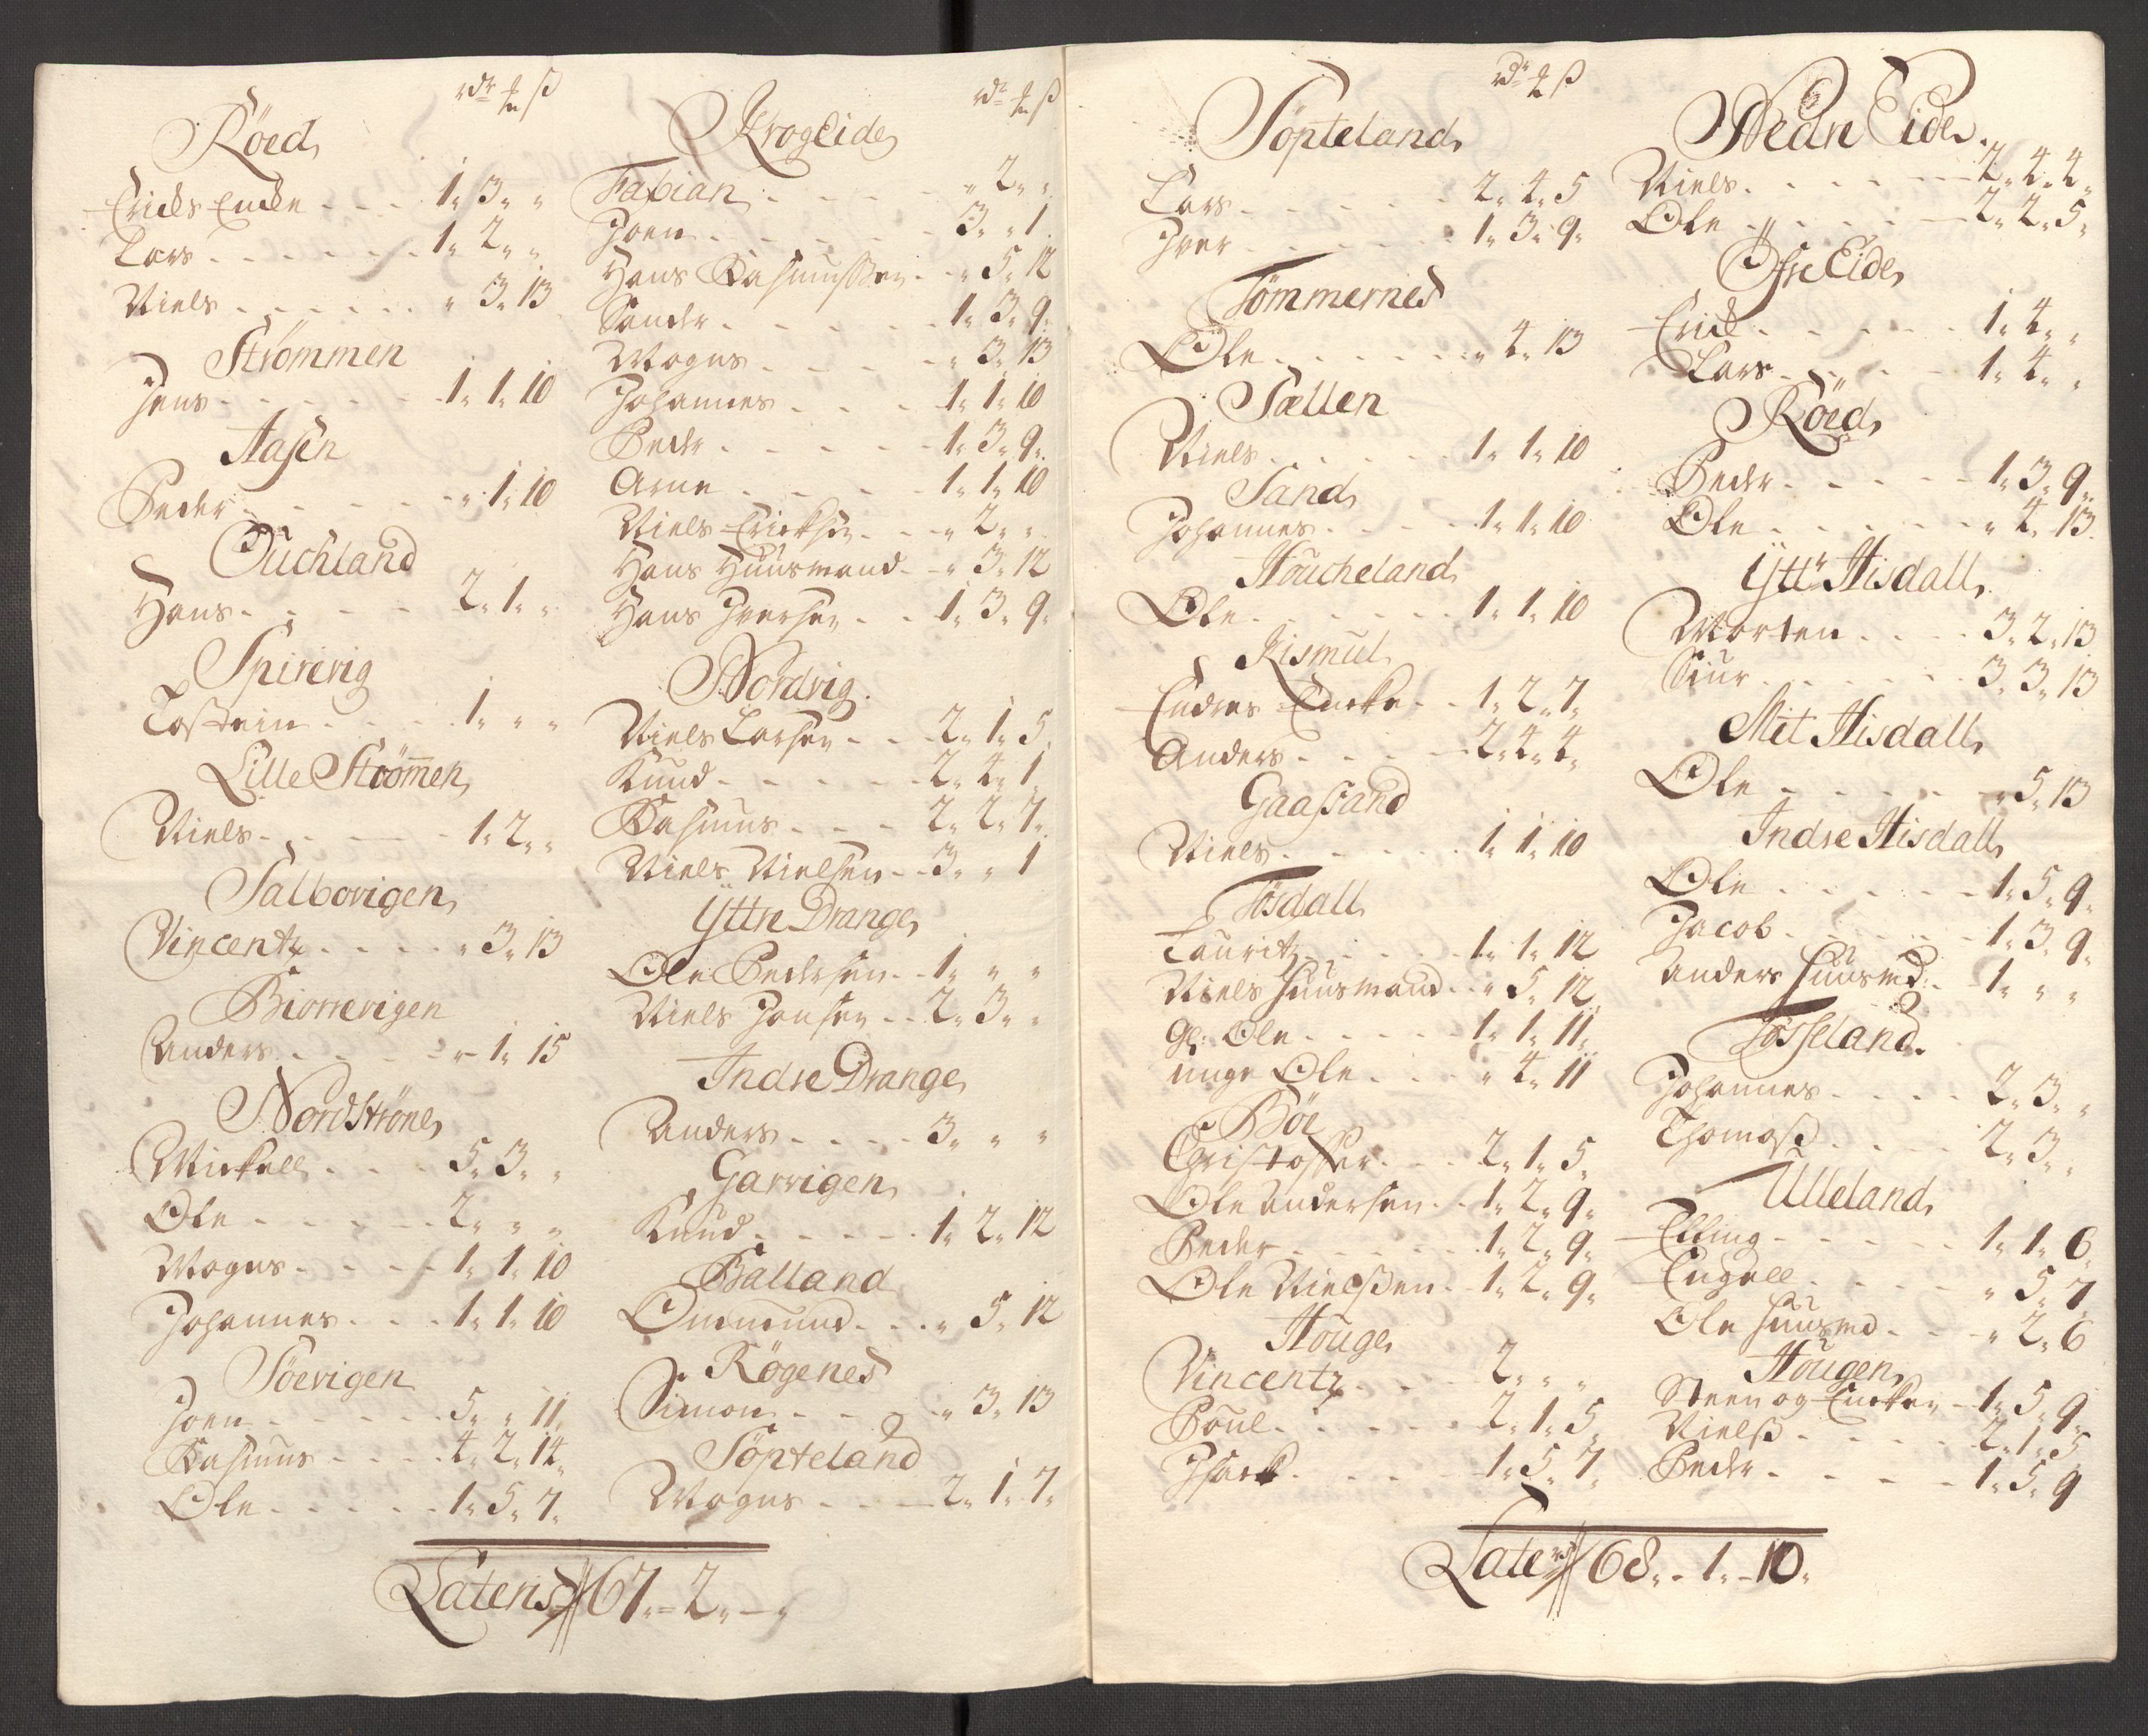 rdr ß
Röed
Ericks Encke - - - 1" 3" "
Lars - - - - - - 1" 2" "
Niels - - - - - - " 3" 13
Strömmen
Jens - - - - - - 1" 1" 10
Aasen
Peder - - - - - " 1" 10
Ouchland
Hans - - - - - 2" 1" "
Spirevig
Tostein - - - - 1" " "
Lille Strömen
Niels - - - - - 1" 2" "
Salbovigen
Vincentz - - - - " 3" 13
Biorrevigen
Anders - - - - " 1" 15
Nordströne
Mickell - - - 5" 3" "
Ole - - - - - 2" " "
Mogns - - - - 1" 1" 10
Johannes - - - 1" 1" 10
Söevigen
Joen - - - - - 5" " 11"
Rasmus - - - - 4" 2" 14"
Ole - - - - - 1" 5" 7"
rdr ß
Krog Eide
Fabian - - - - " 2" "
Joen - - - - - 3" " 1
Hans Rasmussen - " 5" 12
Sander - - - - - 1" 3" 9"
Mogns - - - - " 3" 13
Johannes - - - 1" 1" 10
Peder - - - - - 1" 3" 9"
Arne - - - - 1" 1" 10
Niels Ericksen - - " 2" "
Hans Huusmand - " 3" 12
Hans Iversen - - 1" 3" 9"
Nordvig
Niels Larsen - - 2" 1" 5
Knud - - - - - 2" 4" 1
Rasmus - - - 2" 2" 7"
Niels Nielsen - - 3" " 1
Ÿttre Drange
Ole Pedersen - - 1" " "
Niels Jonsen - - 2" 3" "
Indre Drange
Anders - - - - 3" " "
Garvigen
Knud - - - - - 1" 2" 12
Balland
Ommund - - - " 5" 12
Rögenes
Simon - - - - " 3" 13
Söpteland
Mogns - - - 2" 1" 7"
Lateris 67" - 2" - "
rdr ß
Söpteland
Lars - - - - - 2" 4" 5
Iver - - - - - 1" 3" 9"
Tömmernes
Ole - - - - - " 4" 13
Sællen
Niels - - - - - 1" 1" 10
Sand
Johannes - - - - 1" 1" 10
Houcheland
Ole - - - - - 1" 1" 10
Rismul
Endres Encke - - 1" 2" 7"
Anders - - - - 2" 4" 4"
Gaassand
Niels - - - - - 1" 1" 10
Tösdall
Lauritz - - - - 1" 1" 12
Niels Huusmand - " 5" 12
Gl: Ole - - - - - 1" 1" 11"
unge Ole - - - " 4" 11
Böe
Christoffer - - - 2" 1" 5"
Ole Andersen - - 1" 2" 9"
Peder - - - - - 1" 2" 9"
Ole Nielßen - - 1" 2" 9"
Houge
Vincentz - - - 2" " "
Poul - - - - - 2" 1" 5"
Isack - - - - 1" 5" 7"
Nedre Eide
Niels - - - - - 2" 4" 4"
Ole - - - - - 2" 2" 5"
Öfre Eide
Erick - - - - - 1" 4" "
Lars - - - - 1" 4" "
Röed
Peder - - - - - 1" 3" 9"
Ole - - - - - " 4" 13
Ÿttr Hisdall
Morten - - - - 3" 2" 13
Siur - - - - - 3" 3" 13
Mit Hisdall
Ole - - - - - " 5" 13
Indre Hisdall
Ole - - - - - 1" 5" 9"
Jacob - - - - - 1" 3" 9"
Anders Huusmd: - 1" " "
Tösseland
Johannes - - - - 2" 3" "
Thomaß - - - - 2" 3" "
Ulleland
Elling - - - - - 1" 1" 6"
Engell - - - - " 5" 7"
Ole Huusmd - - - " 2" 6
Hougen
Steen og Encken - 1" 5" 9"
Nielß - - - - - 2" 1" 5
Peder - - - - 1" 5" 9
Laters 68" - 1" - 10"